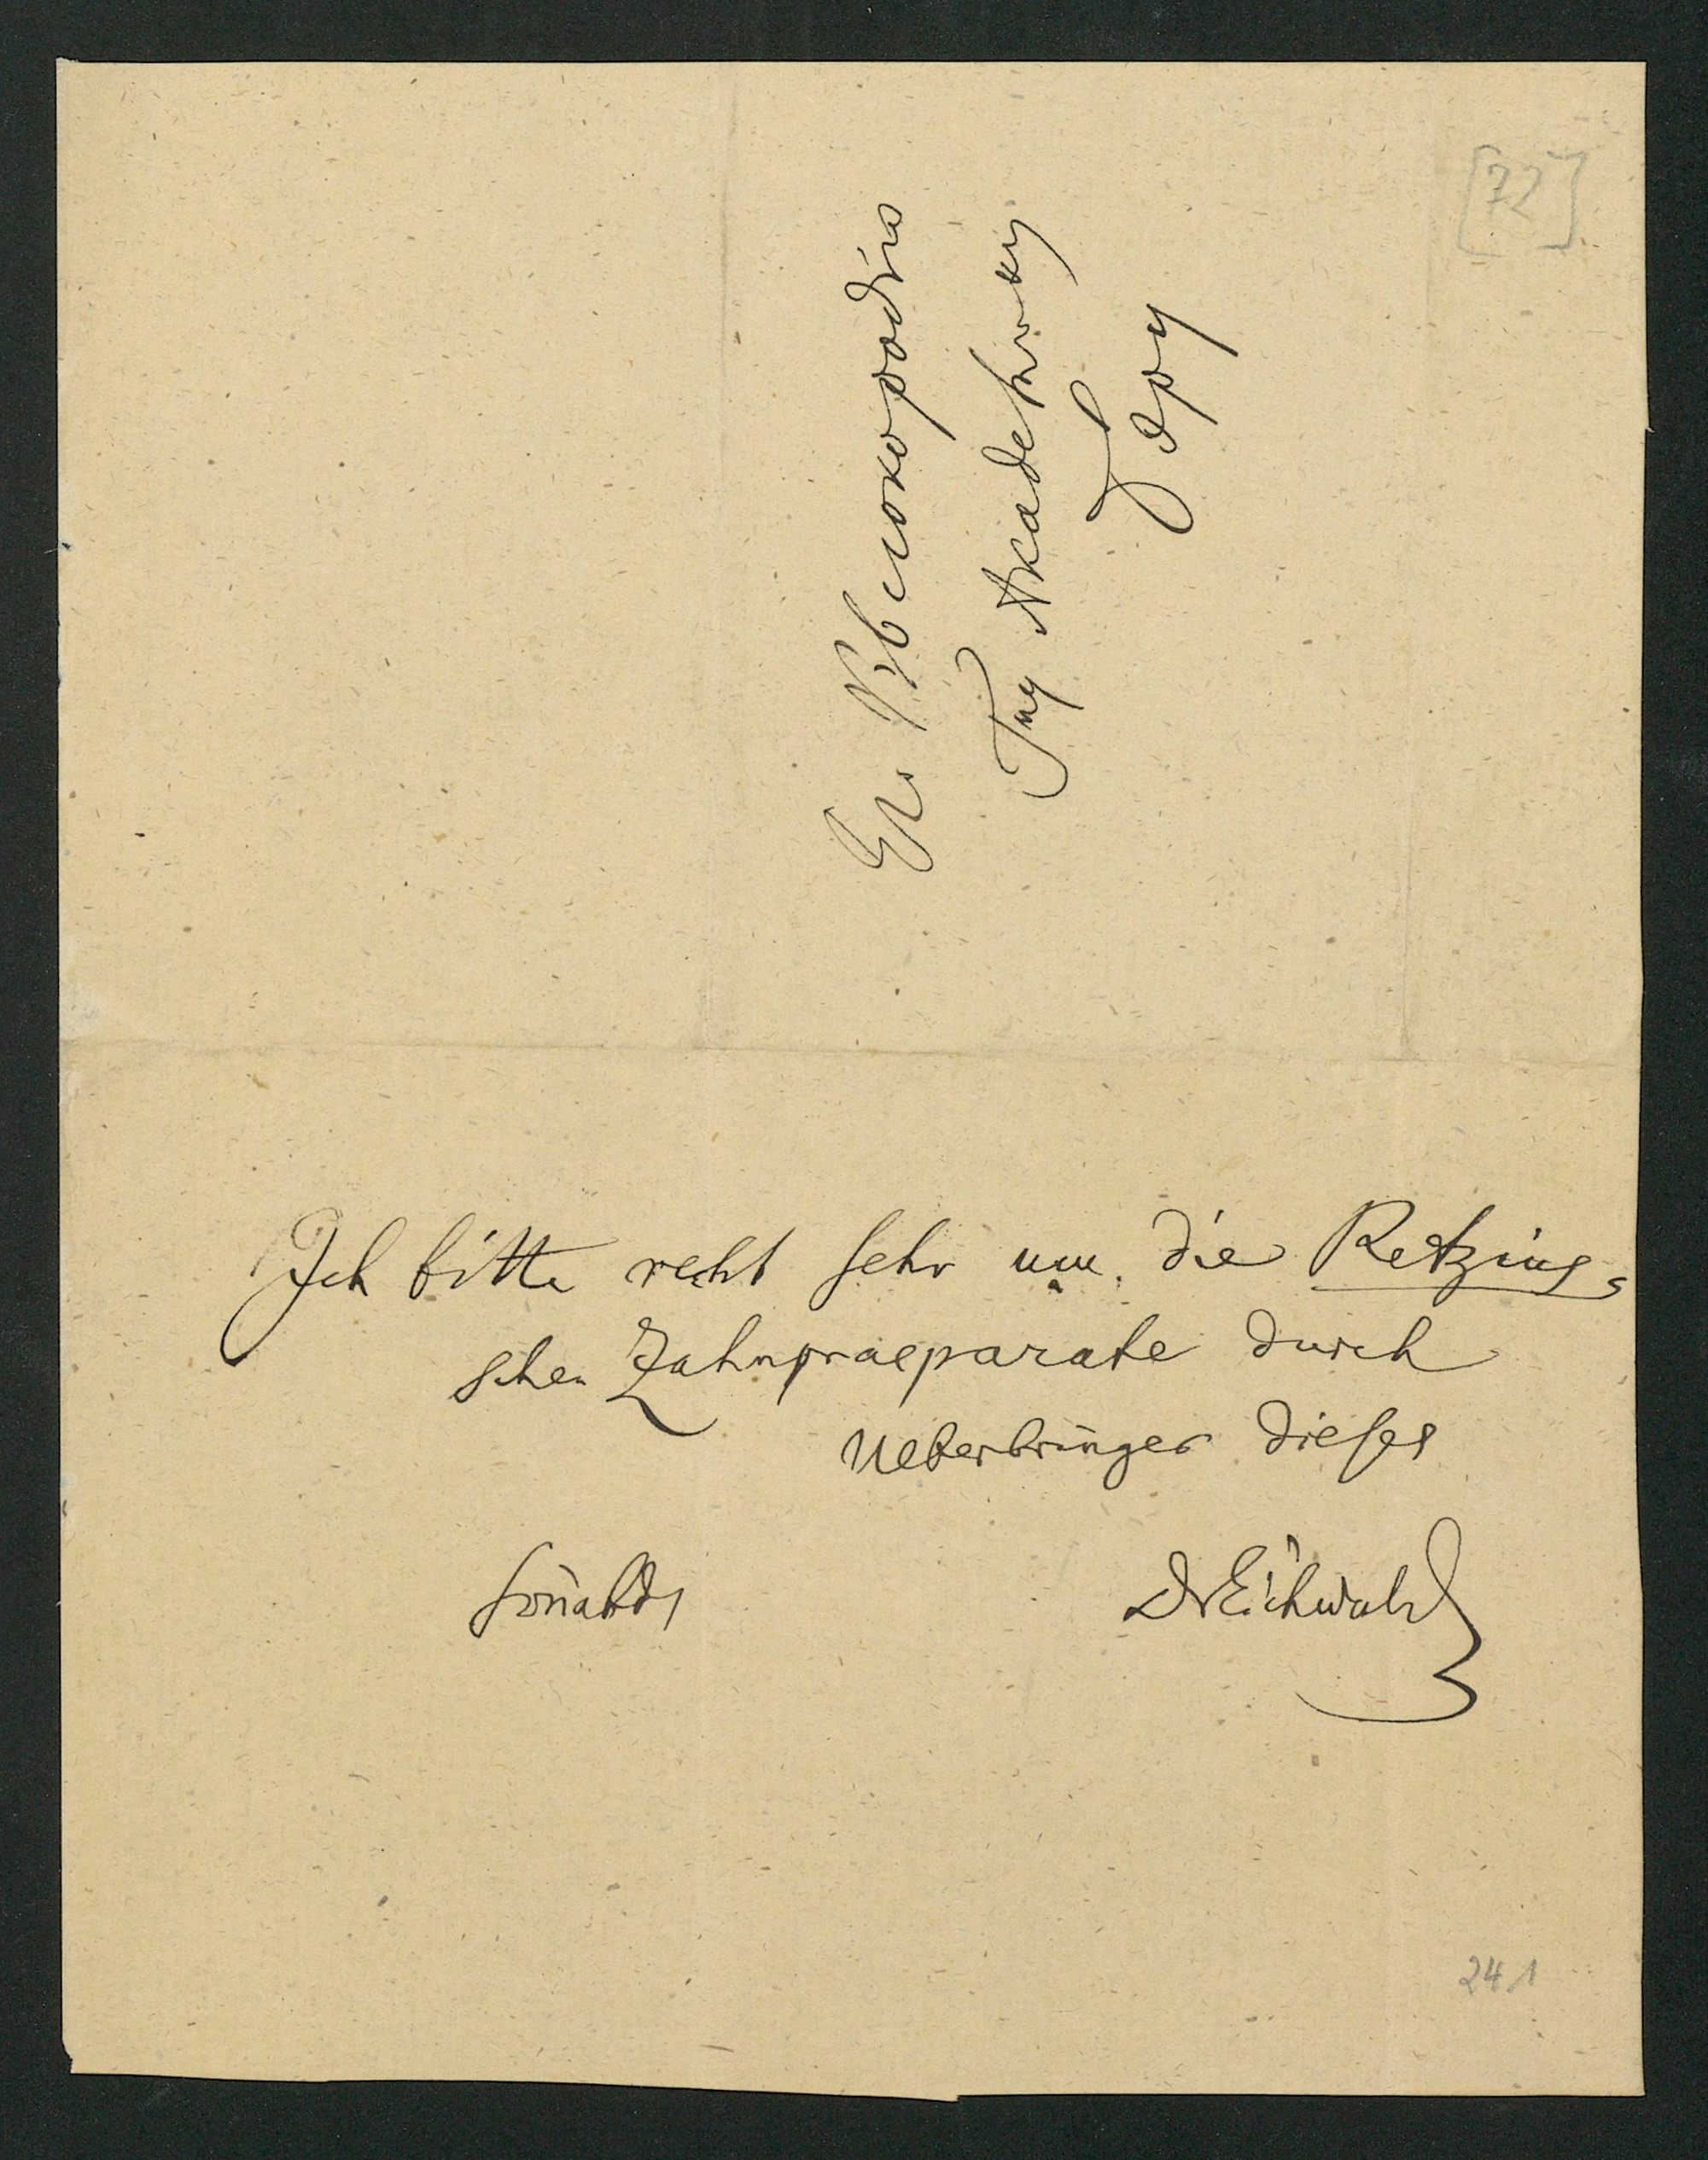 [72]
Его Высокородию
Гну Академику
Бэру
Ich bitte recht sehr um die Retzius-
schen Zahnpraeparate durch
Ueberbringer dieses
Sonnabds
DrEichwald
241